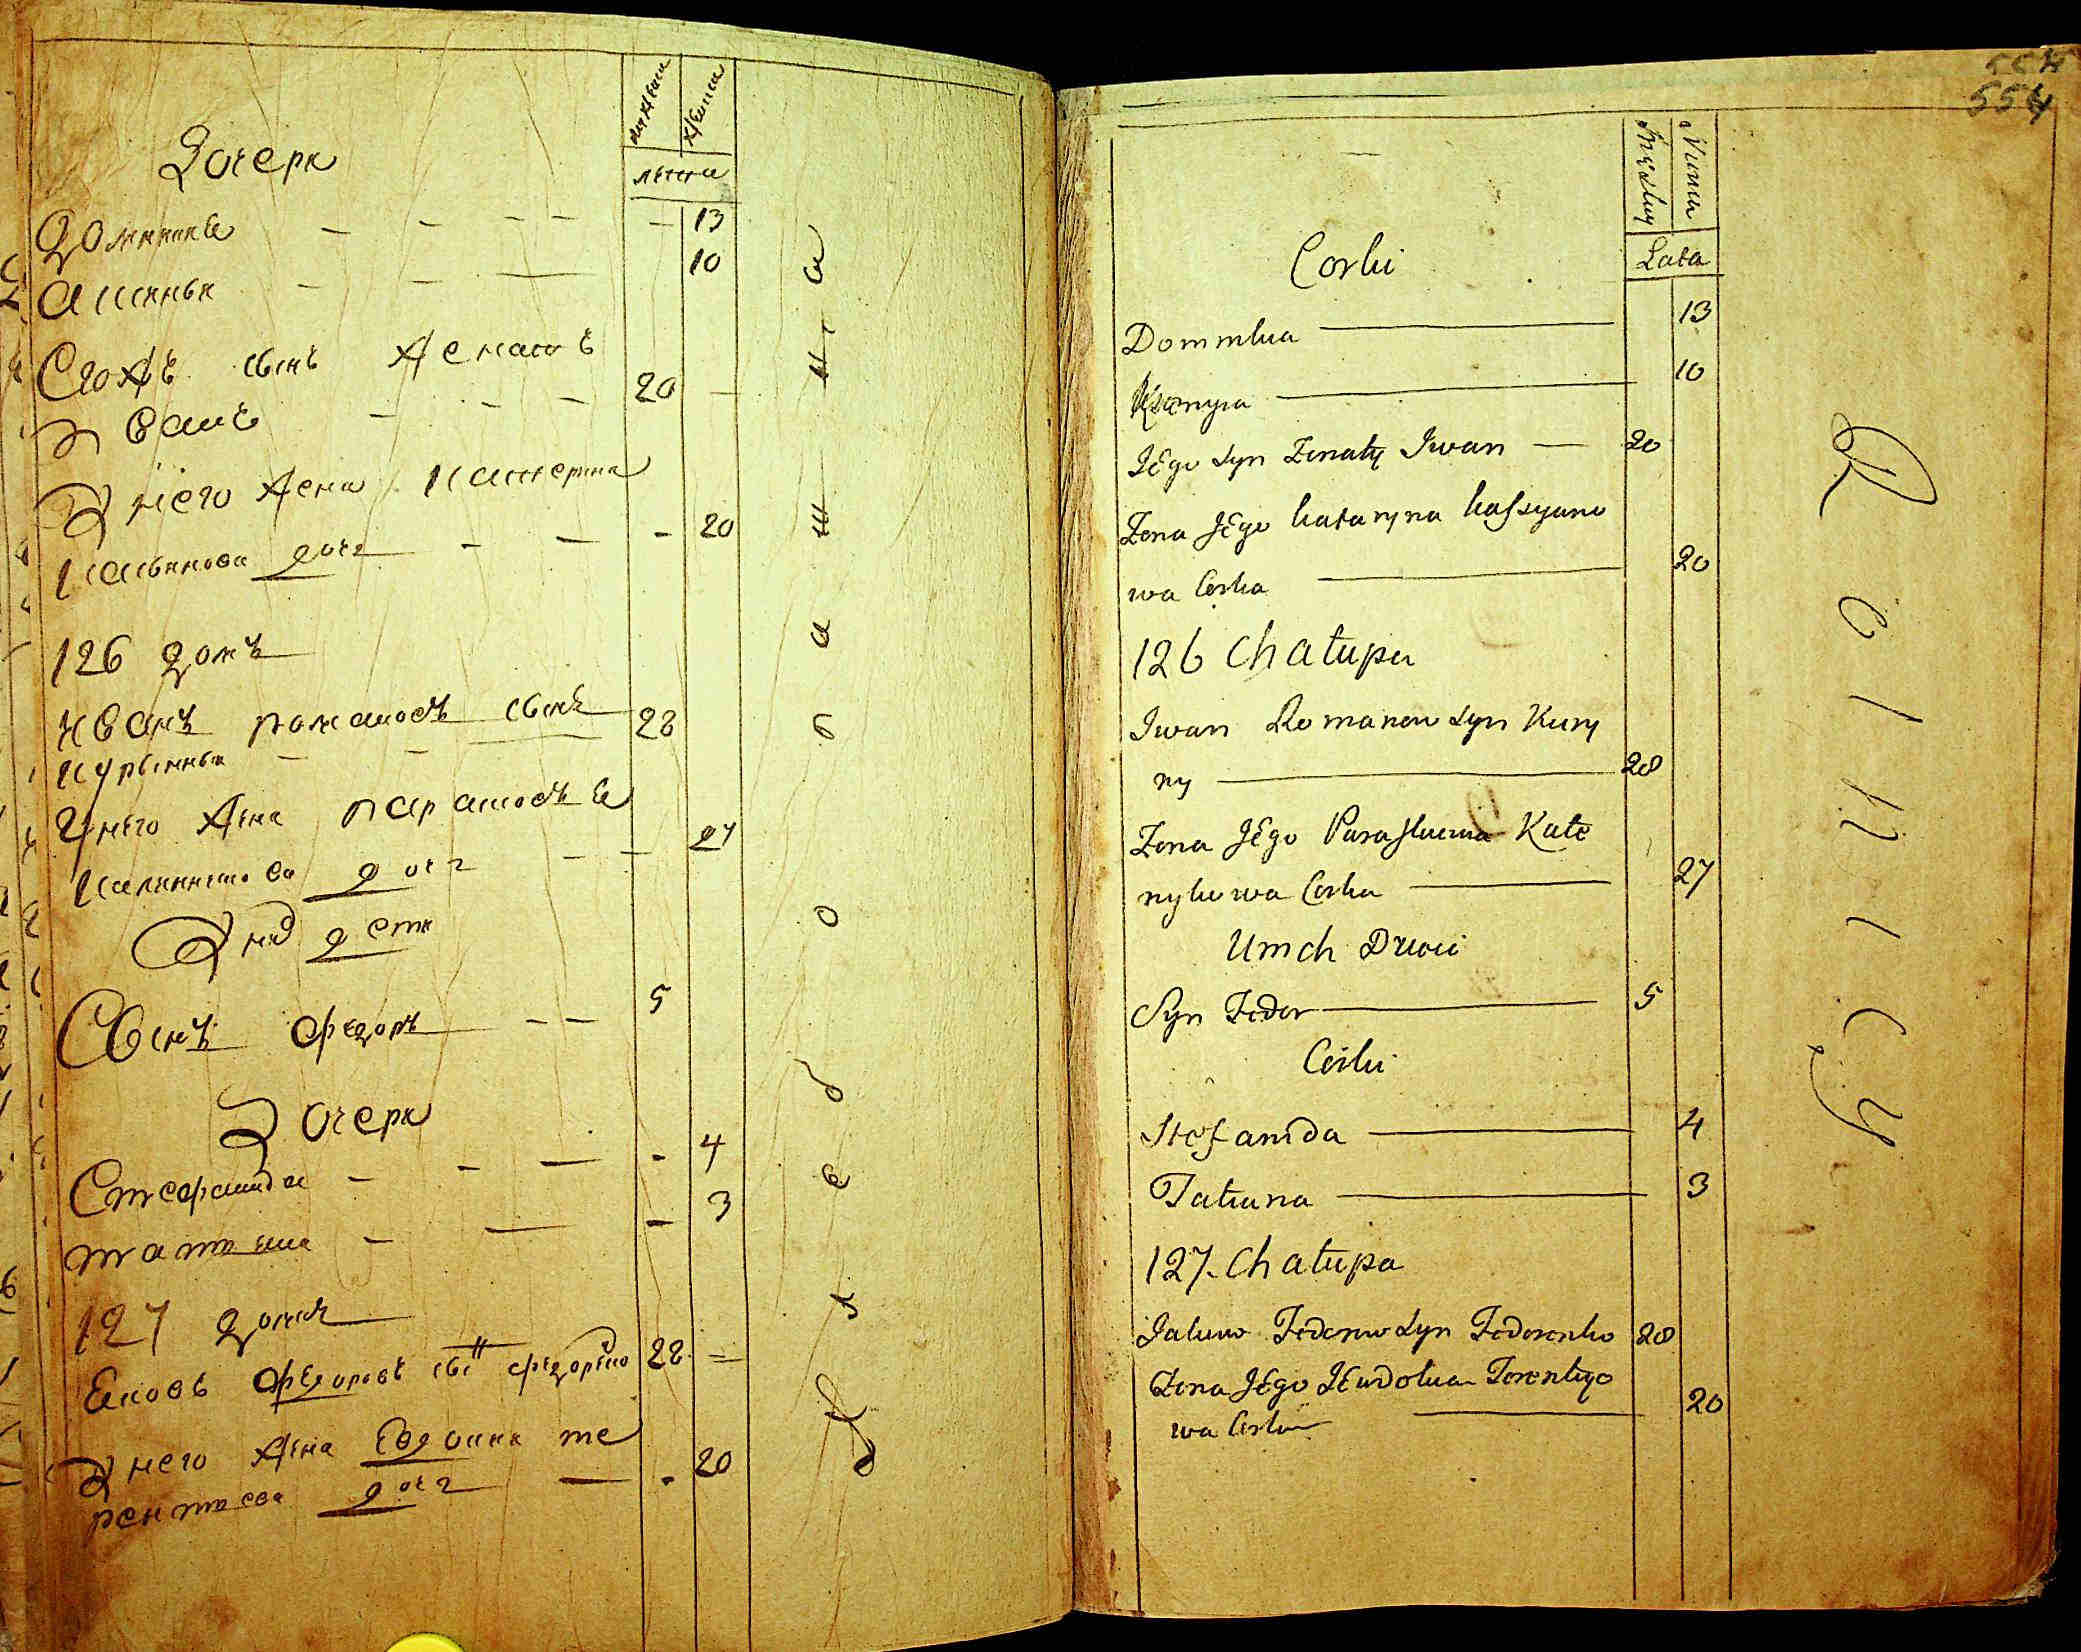 мужеска
женска
лета
Дочери
Доминика — 13
10
Его сынъ женатъ
Иванъ — 20
У него жена Катерина
Касьянова дочь — 20
126 домъ
Иванъ Романовъ сынъ 28
Курынны
У него жена Парасковья
дочь — 27
У них дети
Сынъ Федоръ — 5
Дочери
Стефанида — 4
Татьяна — 3
127 домъ
Яковъ Федоровъ сынъ Федоренко 28
У него жена Евдокия Те
рентьева дочь — 20
554
554
Męzkey
Lata
Corki
Dominika — 13
10
JEgo Syn Zonaty Iwan — 20
Zona JEgo Kataryna Kassyano
wa Corka — 20
126 Chałupa
Iwan Romanow Syn Kury
ny — 28
Zona JEgo Paraskiewia Kale
nykowa Corka — 27
U nich Dzieci
Syn Fedor — 5
Corki
Stefanida — 4
Tatiana — 3
127. Chałupa
Jakow Fedorow Syn Fedorenko 28
Zona JEgo JEwdokia Terentyo
wa Corka — 20
Rolnicy